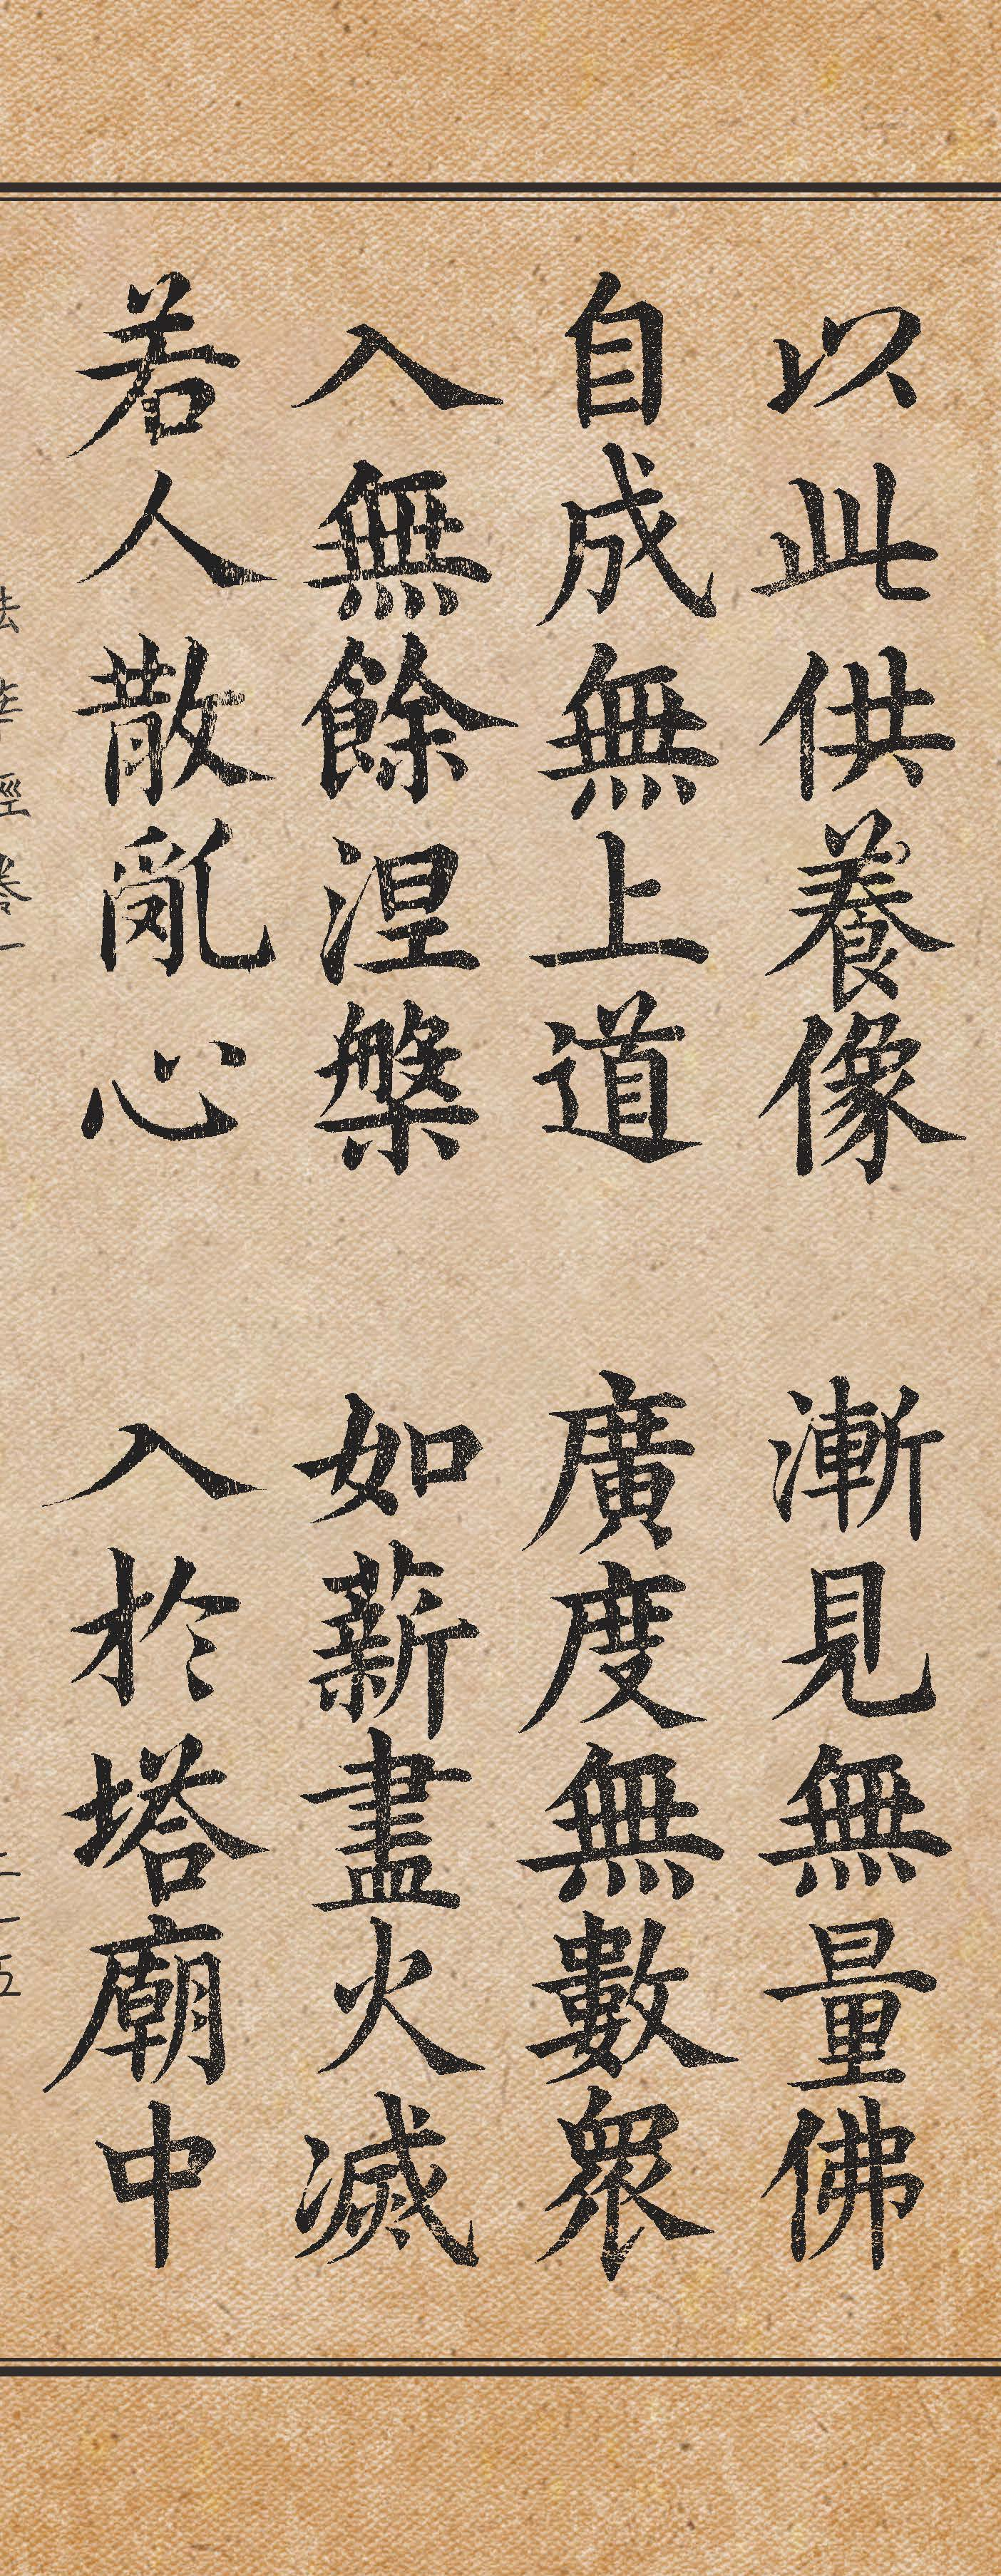 以此供養像　漸見無量佛
自成無上道　廣度無數眾
入無餘涅槃　如薪盡火滅
若人散亂心　入於塔廟中
法華經卷一　二一五